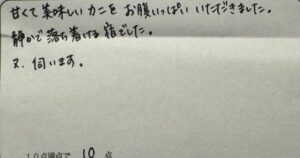 甘くて美味しいカニをお腹いっぱいいただきました。
静かで落ち着ける宿でした。
又、伺います。
10点満点で 10 点